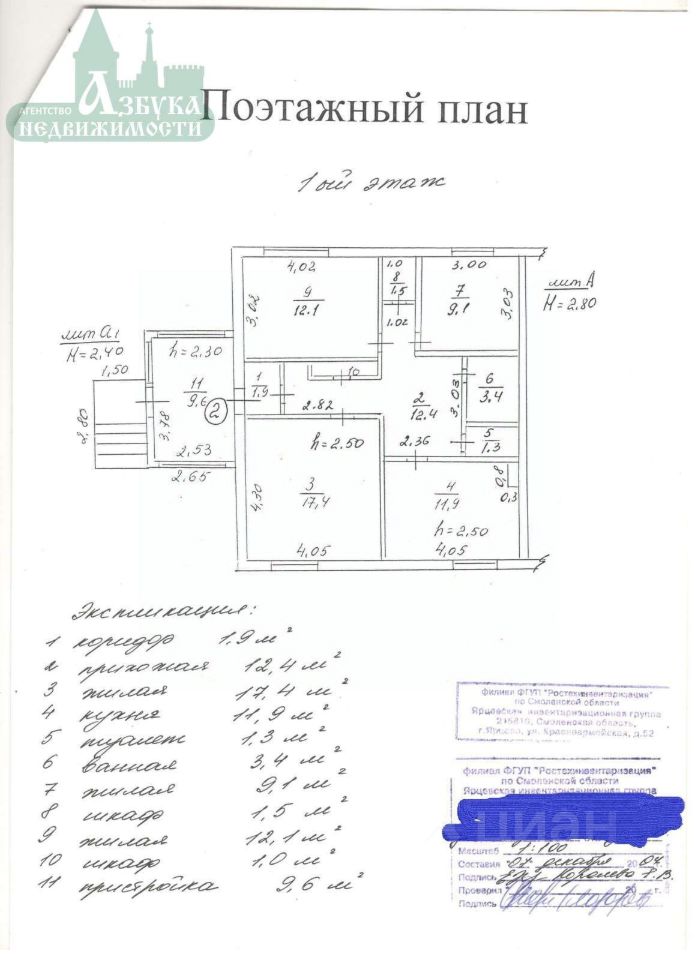 АГЕНТСТВО
АЗБУКА
НЕДВИЖИМОСТИ
Поэтажный план
1ый этаж
4,02
1.0
3.00
8
1.5
9
12.1
7
9.1
3,02
3,03
1.02
лит А
H = 2.80
лит А1
H = 2,40
1,50
h = 2.30
11
9.6
2
1
1.9
10
2
12.4
3,03
6
3.4
2.80
3,78
2.82
2.53
h = 2.50
2,36
5
1.3
2.65
3
17,4
4,30
4
11,9
0,8
0,3
h = 2,50
4,05
4,05
Экспликация:
1 коридор 1,9 м²
2 прихожая 12,4 м²
3 жилая 17,4 м²
4 кухня 11,9 м²
5 туалет 1,3 м²
6 ванная 3,4 м²
7 жилая 9,1 м²
8 шкаф 1,5 м²
9 жилая 12,1 м²
10 шкаф 1,0 м²
11 пристройка 9,6 м²
филиал ФГУП "Ростехинвентаризация"
по Смоленской области
Ярцевская инвентаризационная группа
215810, Смоленская область,
г.Ярцево, ул. Красноармейская, д.52
филиал ФГУП "Ростехинвентаризация"
по Смоленской области
Ярцевская инвентаризационная группа
циан
Масштаб 1:100
Составил 07 декабря 2007
Подпись Королева Г.В.
Проверил 20 г.
Подпись